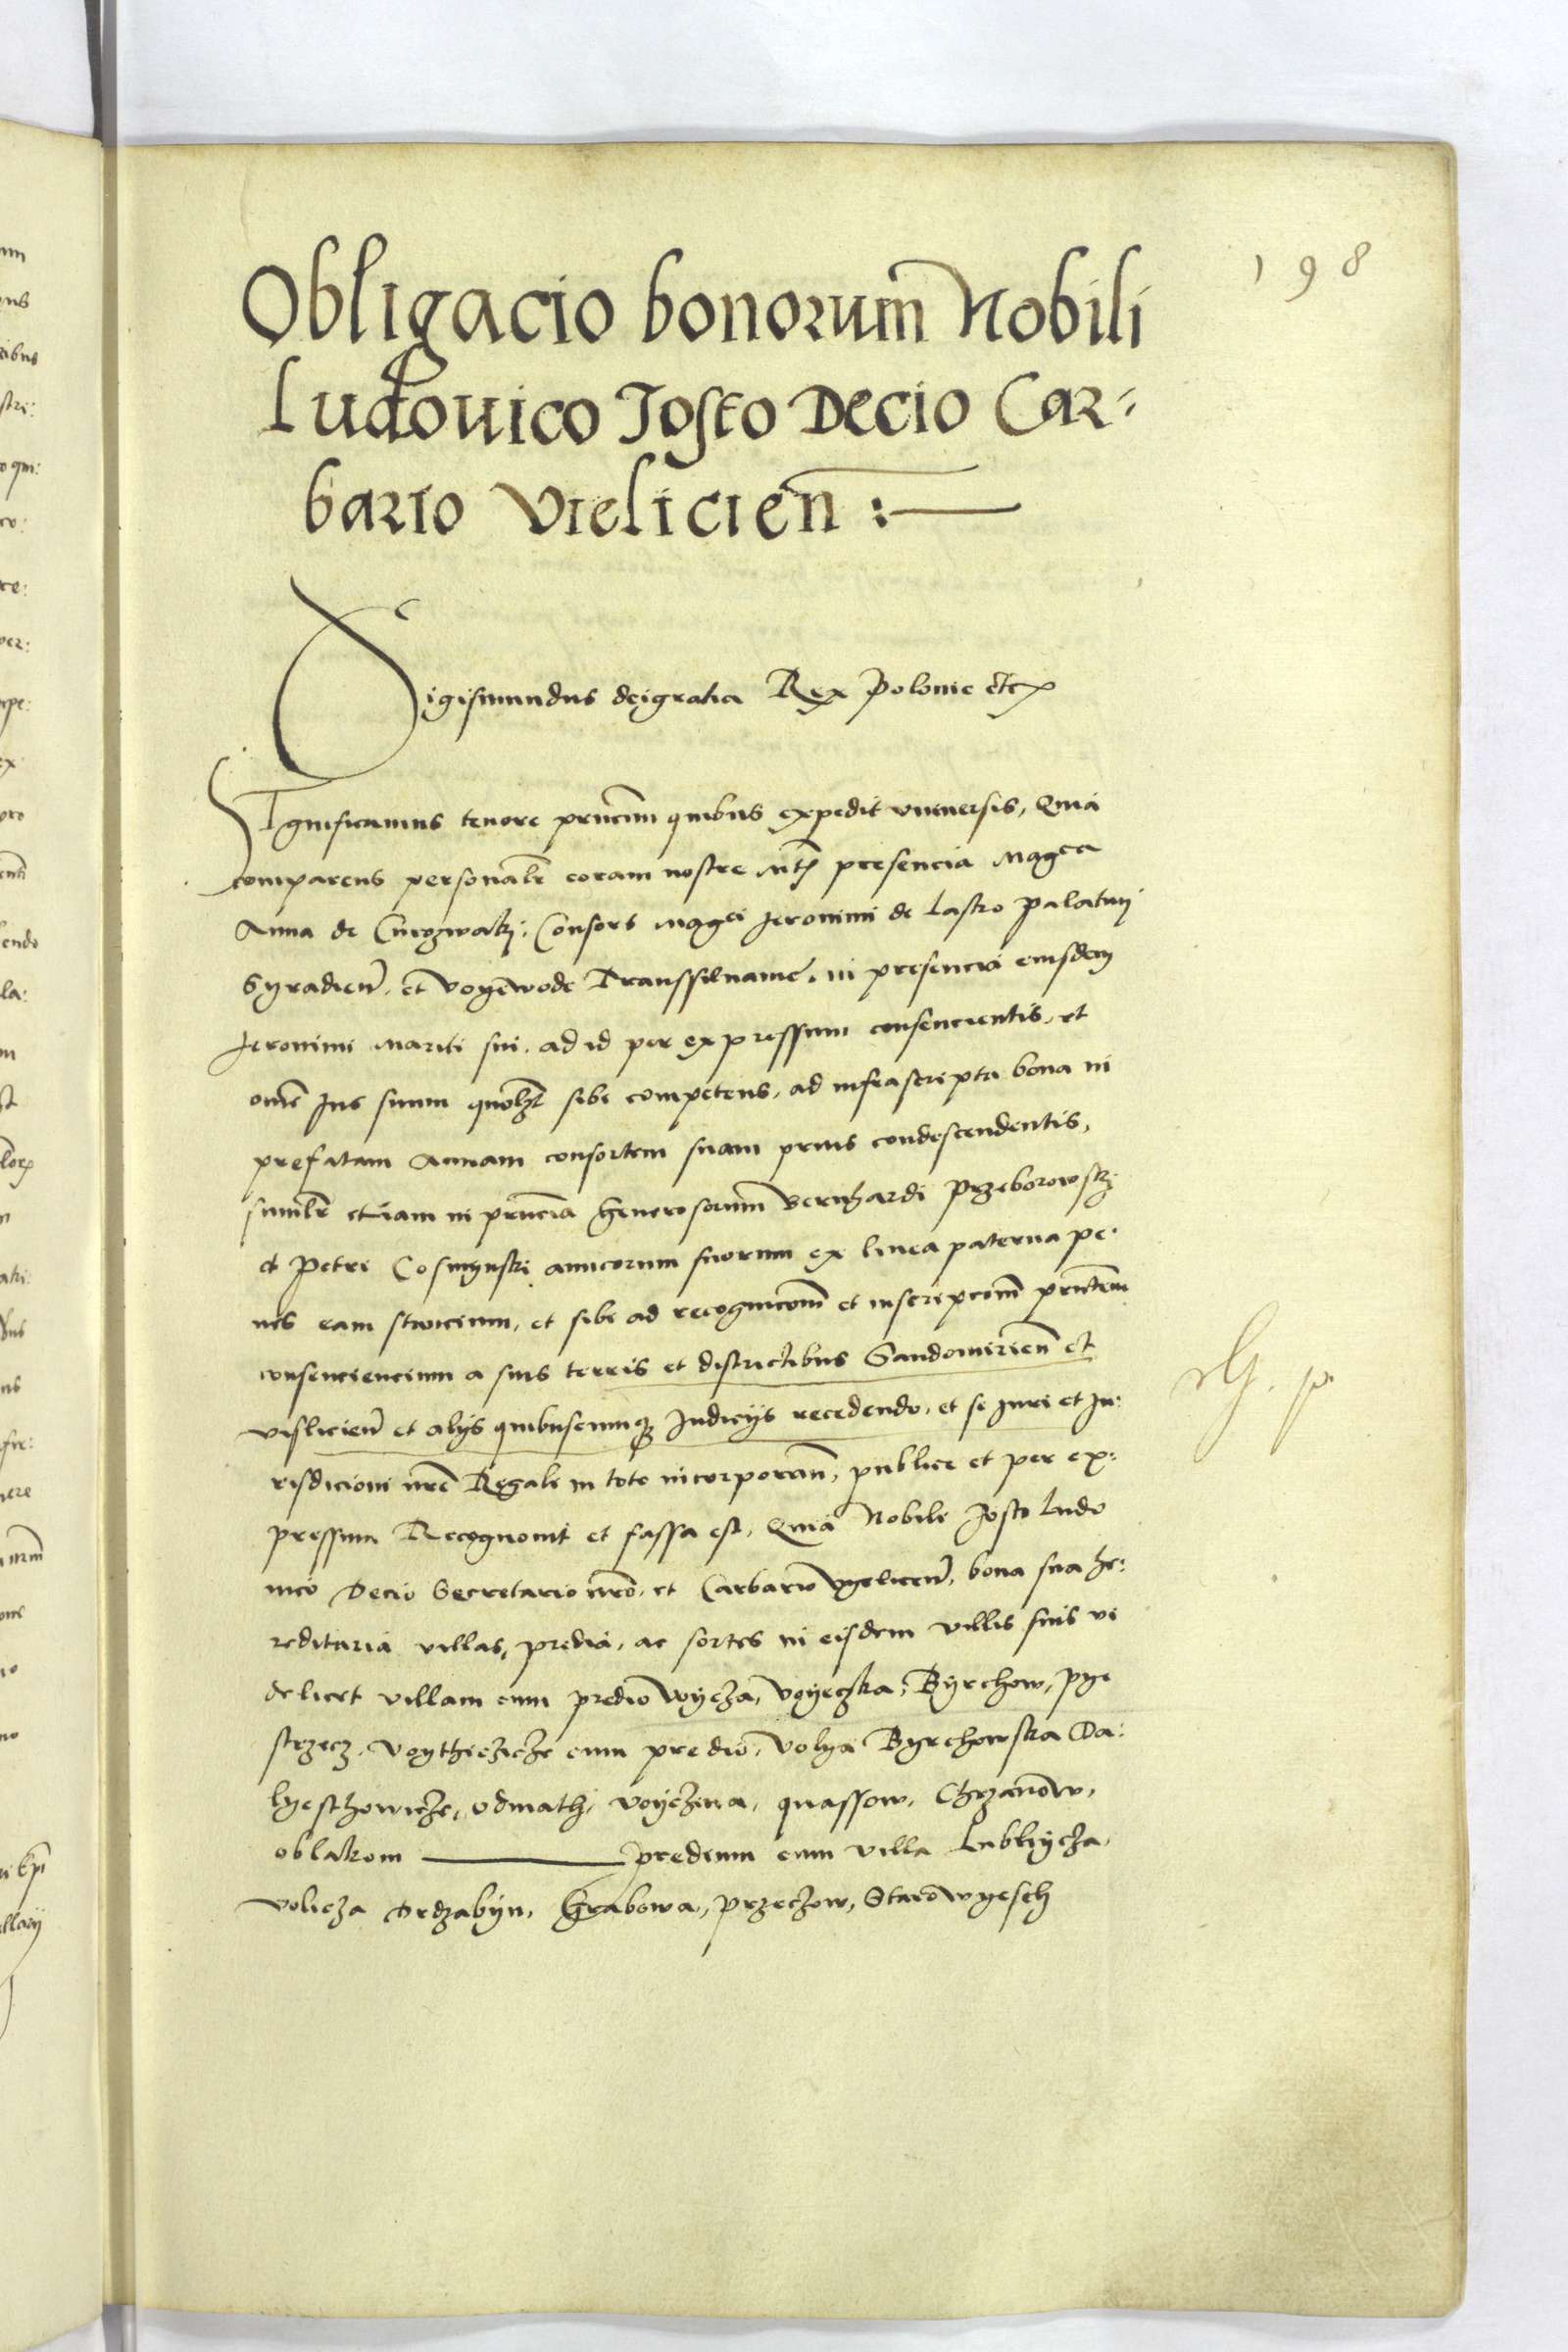 198
Obligacio bonorum Nobili
Ludovico Josto Decio Car-
bario Vielicien̄ :—
Sigismundus dei gratia Rex Polonie etc
Significamus tenore prñcium quibus expedit vniuersis, Quia
comparens personalr̄ coram nostre Mtis presencia Magca
Anna de Curozwaki, Consors Magci Jeronimi de Lasko palatini
Syradien̄, et voyewode Transsiluanie, in presencia eiusdem
Jeronimi mariti sui, ad id per expressum consencientis, et
om̄e Ius suum quolz̄t sibi competens, ad infrascripta bona in
prefatam Annam consortem suam prius condescendentis,
similr̄ etiam in prñcia Generosorum Bernhardi Przeborowski
et Petri Cosmynski amicorum suorum ex linea paterna pe-
nes eam stancium, et sibi ad recognicom̄ et inscripcom̄ prñtem
consenciencium a suis terris et districtibus Sandomirien̄ et
vislicien̄ et alijs quibuscumq3 Iudicijs recedendo, et se Iuri et Iu-
risdicioni nr̄e Regali in toto incorporan̄, publice et per ex-
pressum Recognouit et fassa est, Quia Nobili Josto Ludo
uico Decio Secretario nr̄o, et Carbario vyelicien̄, bona sua he-
reditaria villas, predia, ac sortes in eisdem villis suis vi
delicet villam cum predio wycza, voyeczka, Byrchow, pye
strzecz, voythyczicze cum predio, volya Byrchowska Da-
lyeschowicze, vdmath, voyczina, quassow, Chrzanow,
oblakom — predium cum villa Lublycza,
volicza Drdzabyn, Grabowa, przeczow, Starowyesch